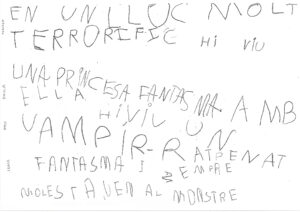 EN UN LLUC MOLT
TERRORIFIC HI VIU
UNA PRINCESA FANTASMA AMB
ELLA HI VIU UN
VAMPIR-RATPENAT
FANTASMA I SEMPRE
MOLESTAVEN AL MONSTRE